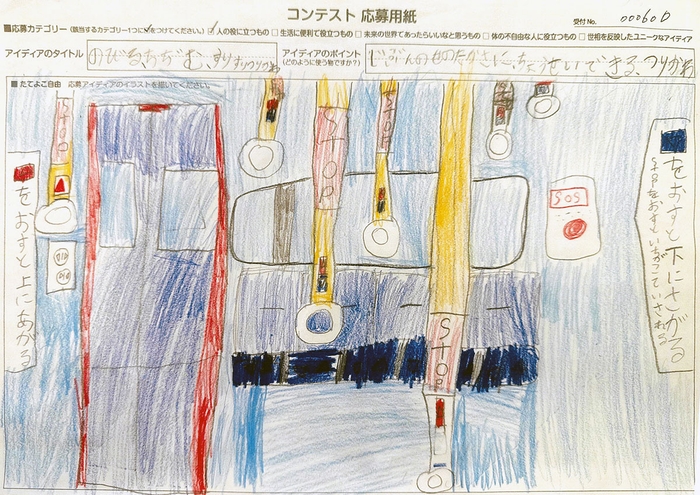 コンテスト 応募用紙
受付No. 00060D
■応募カテゴリー(該当するカテゴリー1つに✓をつけてください。) ☑人の役に立つもの □生活に便利で役立つもの □未来の世界であったらいいなと思うもの □体の不自由な人に役立つもの □世相を反映したユニークなアイディア
アイディアのタイトル のびるちぢむ、すりすりつりかわ
アイディアのポイント (どのように使う物ですか?) じぶんのせのたかさに、ちょうせいできる、つりかわ
■たてよこ自由 応募アイディアのイラストを描いてください。
をおすと上にあがる
STOP
STOP
STOP
STOP
SOS
をおすと下にさがる
STOPをおすといちがこていされる